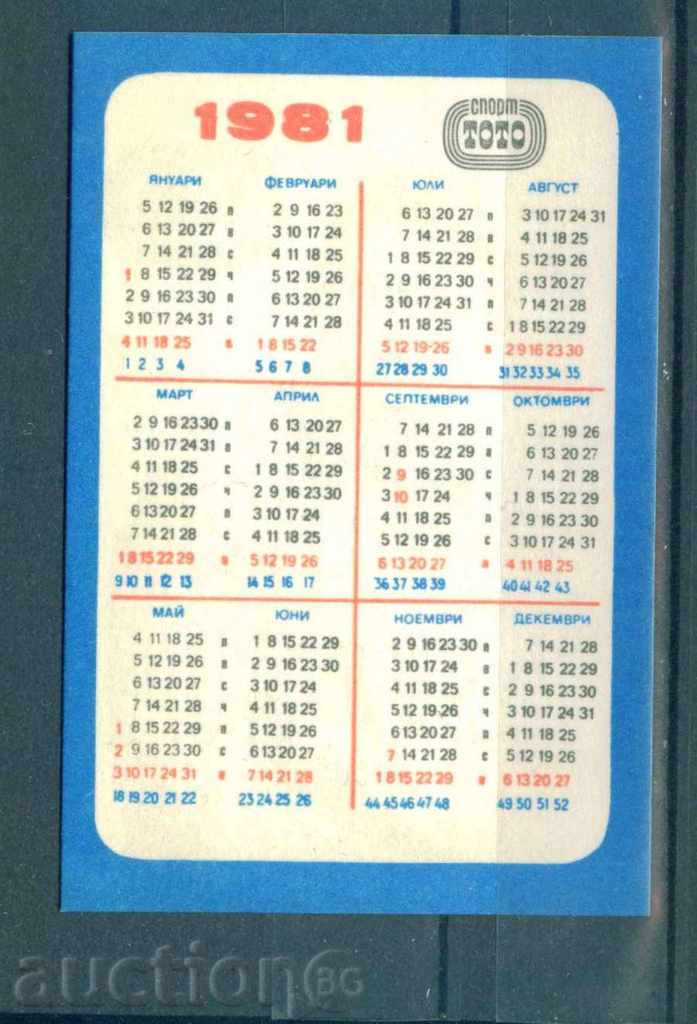 1981
СПОРТ
ТОТО
ЯНУАРИ
5 12 19 26 П
6 13 20 27 В
7 14 21 28 С
1 8 15 22 29 Ч
2 9 16 23 30 П
3 10 17 24 31 С
4 11 18 25 В
1 2 3 4
ФЕВРУАРИ
2 9 16 23
3 10 17 24
4 11 18 25
5 12 19 26
6 13 20 27
7 14 21 28
1 8 15 22
5 6 7 8
ЮЛИ
6 13 20 27 П
7 14 21 28 В
1 8 15 22 29 С
2 9 16 23 30 Ч
3 10 17 24 31 П
4 11 18 25 С
5 12 19-26 В
27 28 29 30
АВГУСТ
3 10 17 24 31
4 11 18 25
5 12 19 26
6 13 20 27
7 14 21 28
1 8 15 22 29
2 9 16 23 30
31 32 33 34 35
МАРТ
2 9 16 23 30 П
3 10 17 24 31 В
4 11 18 25 С
5 12 19 26 Ч
6 13 20 27 П
7 14 21 28 С
1 8 15 22 29 В
9 10 11 12 13
АПРИЛ
6 13 20 27
7 14 21 28
1 8 15 22 29
2 9 16 23 30
3 10 17 24
4 11 18 25
5 12 19 26
14 15 16 17
СЕПТЕМВРИ
7 14 21 28 П
1 8 15 22 29 В
2 9 16 23 30 С
3 10 17 24 Ч
4 11 18 25 П
5 12 19 26 С
6 13 20 27 В
36 37 38 39
ОКТОМВРИ
5 12 19 26
6 13 20 27
7 14 21 28
1 8 15 22 29
2 9 16 23 30
3 10 17 24 31
4 11 18 25
40 41 42 43
МАЙ
4 11 18 25 П
5 12 19 26 В
6 13 20 27 С
7 14 21 28 Ч
1 8 15 22 29 П
2 9 16 23 30 С
3 10 17 24 31 В
18 19 20 21 22
ЮНИ
1 8 15 22 29
2 9 16 23 30
3 10 17 24
4 11 18 25
5 12 19 26
6 13 20 27
7 14 21 28
23 24 25 26
НОЕМВРИ
2 9 16 23 30 П
3 10 17 24 В
4 11 18 25 С
5 12 19 26 Ч
6 13 20 27 П
7 14 21 28 С
1 8 15 22 29 В
44 45 46 47 48
ДЕКЕМВРИ
7 14 21 28
1 8 15 22 29
2 9 16 23 30
3 10 17 24 31
4 11 18 25
5 12 19 26
6 13 20 27
49 50 51 52
auctionBG